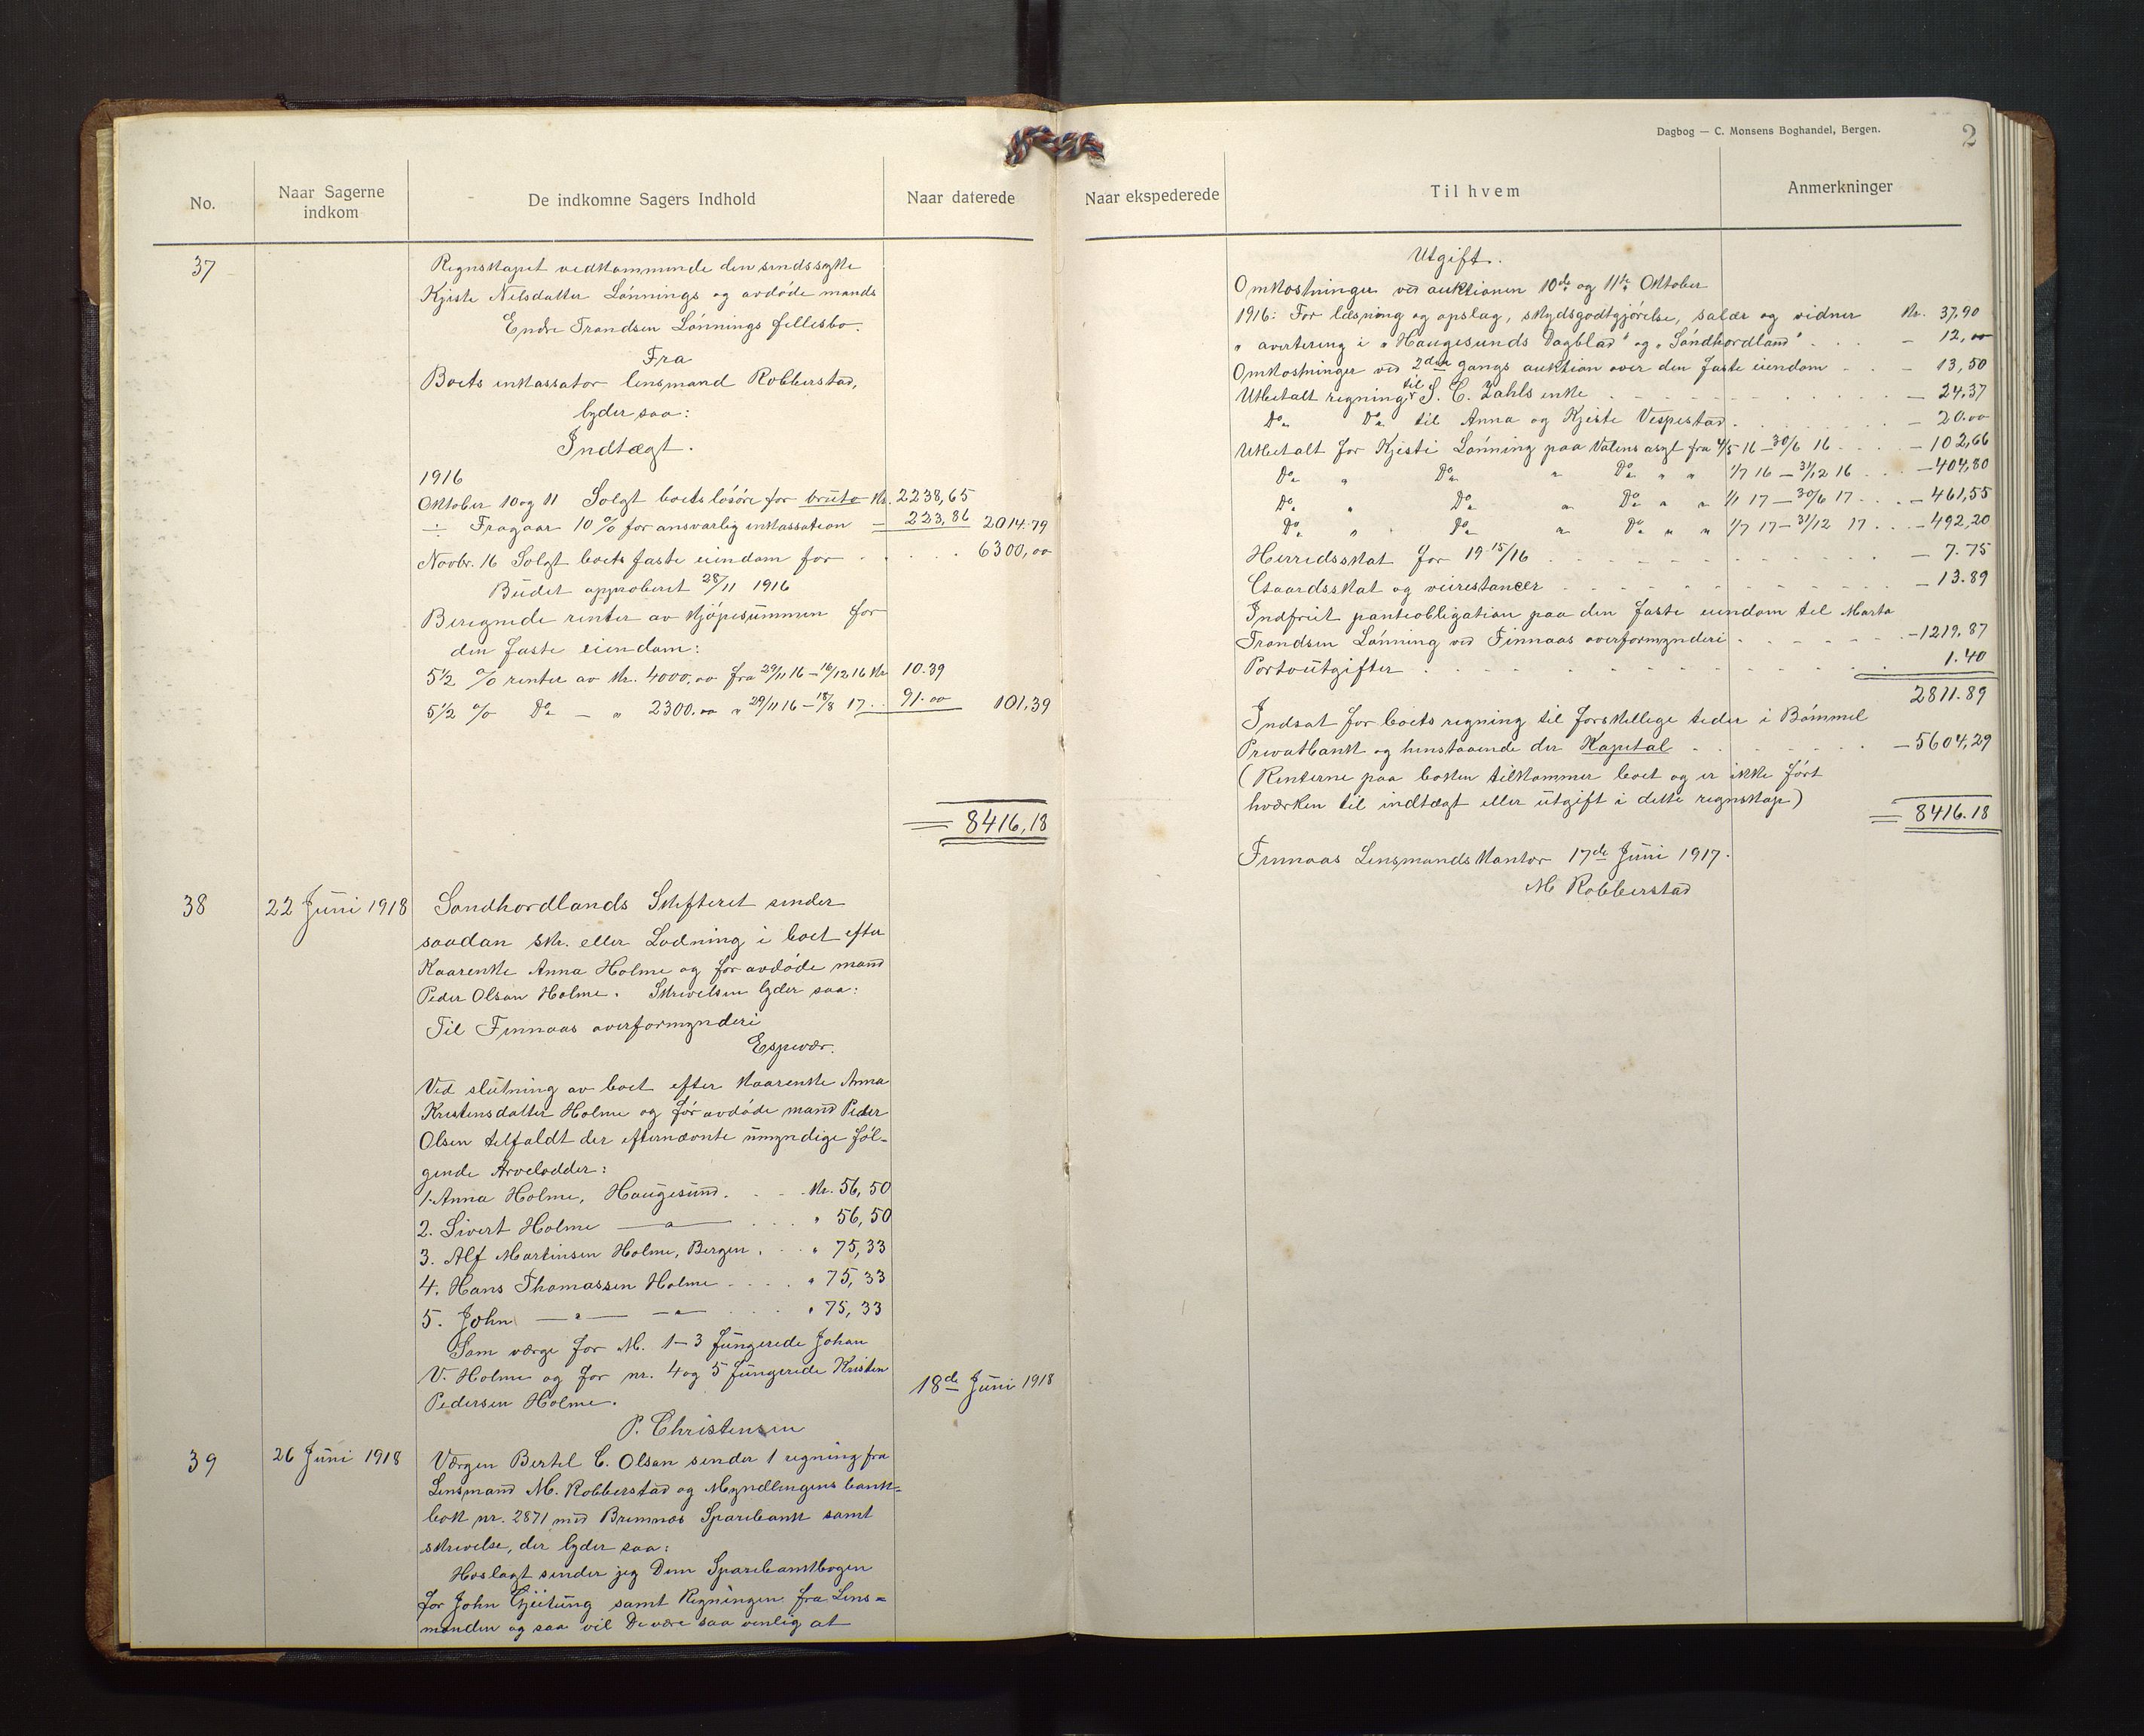 Dagbog — C. Monsens Boghandel, Bergen.
2
No.
Naar Sagerne indkom
De indkomne Sagers Indhold
Naar daterede
37
Regnskapet vedkommende den sindssyke
Kjiste Nilsdatter Lønnings og avdøde mands
Endre Trondsen Lønnings fellesbo.
Fra
Boets inkassator lensmand Robberstad,
lyder saa:
Indtægt.
1916
Oktober 10 og 11 Solgt boets løsøre for bruto Kr. 2238,65
÷ Fragaar 10 % for ansvarlig inkassation — 223,86 2014.79
Novbr. 16 Solgt boets faste eiendom for . . . . 6300,00
Budet approberet 28/11 1916
Beregnede renter av kjøpesummen for
den faste eiendom:
5½ % renter av Kr. 4000,00 fra 29/11 16 – 16/12 16 Kr 10.39
5½ % Do — " 2300.00 " 29/11 16 – 18/8 17 . . 91.00 101,39
= 8416,18
38
22 Juni 1918
Søndhordlands Skifteret sender
saadan skr. eller Lodning i boet efter
Kaarenke Anna Holme og før avdøde mand
Peder Olson Holme. Skrivelsen lyder saa:
Til Finnaas overformynderi
Espevær.
Ved slutning av boet efter Kaarenke Anna
Kristensdatter Holme og før avdøde mand Peder
Olsen tilfaldt der efternævnte umyndige føl-
gende Arvelodder:
1. Anna Holme, Haugesund. . . Kr. 56,50
2. Sivert Holme —"— . . . " 56,50
3. Alf Martinsen Holme, Bergen . . " 75,33
4. Hans Thomassen Holme . . . . " 75,33
5. John —"— —"— . . . " 75,33
Som værge for N. 1–3 fungerede Johan
V. Holme og for nr. 4 og 5 fungerede Kristen
Pedersen Holme.
18de Juni 1918
P. Christensen
39
26 Juni 1918
Værgen Bertel C. Olson sender 1 regning fra
Lensmand M. Robberstad og Myndlingens bank-
bok nr. 2871 med Bremnes Sparebank samt
skrivelse, der lyder saa:
Hoslagt sender jeg Dem Sparebankbogen
for John Gjeitung samt Regningen fra Lens=
manden og saa vil De være saa venlig at
Naar ekspederede
Til hvem
Anmerkninger
Utgift.
Omkostninger ved auktionen 10de og 11te Oktober
1916: For læsning og opslag, skydsgodtgjørelse, salær og vidner Kr. 37,90
" avertering i "Haugesunds Dagblad" og "Søndhordland" . . . — 12,00
Omkostninger ved 2den gangs auktion over den faste eiendom . . — 13,50
Utbetalt regning til S. C. Zahls enke . . . . — 24,37
Do Do til Anna og Kjiste Vespestad . . . . — 20.00
Utbetalt for Kjisti Lønning paa Valens asyl fra 4/5 16 – 30/6 16 . . . — 102,66
Do " Do " Do " " 1/7 16 – 31/12 16 . . — 404,80
Do " Do " Do " " 1/1 17 – 30/6 17 . . . — 461,55
Do " Do " Do " " 1/7 17 – 31/12 17 . . . — 492,20
Herredsskat for 1915/16 . . . . — 7.75
Gaardsskat og veirestancer . . . . — 13.89
Indfriet panteobligation paa den faste eiendom til Marta
Trondsen Lønning ved Finnaas overformynderi . . . . — 1219.87
Portoutgifter . . . . 1.40
2811.89
Indsat for boets regning til forskellige tider i Bømmel
Privatbank og henstaaende der Kapital . . . . — 5604,29
(Renterne paa boken tilkommer boet og er ikke ført
hverken til indtægt eller utgift i dette regnskap)
= 8416.18
Finnaas Lensmandskontor 17de Juni 1917.
M Robberstad